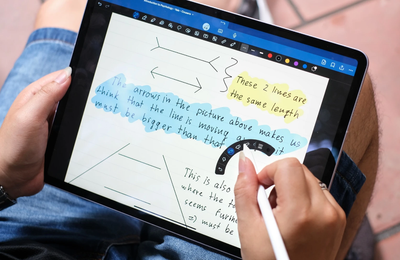 Introduction to Psychology
These 2 lines are
the same length
The arrows in the picture above makes us
think that the line is moving it
must be bigger than that
This is also
where the
seems
must be